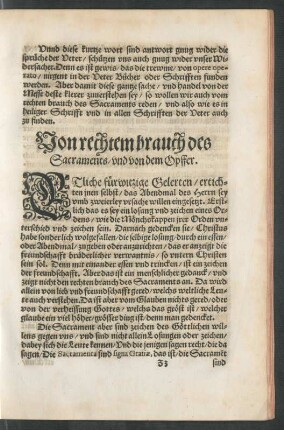 Vnnd diese kurtze wort sind antwort gnug wider die
sprüche der Veter / schützen vns auch gnug wider vnser Wi-
dersacher. Denn es ist gewis / das die trewme / von opere ope-
rato / nirgent in der Veter Bücher oder Schrifften funden
werden. Aber damit diese gantze sache / vnd handel von der
Messe deste klerer zuuerstehen sey / so wollen wir auch vom
rechten brauch des Sacraments reden / vnd also wie es in
heiliger Schrifft vnd in allen Schrifften der Veter auch
zu finden.
Von rechtem brauch des
Sacraments / vnd von dem Opffer.
ETliche fürwitzige Gelerten / ertich-
ten jnen selbst / das Abendmal des Herrn sey
vmb zweierley vrsache willen eingesetzt. Erst-
lich das es sey ein losung vnd zeichen eines Or-
dens / wie die Mönchskappen jrer Orden vn-
terschied vnd zeichen sein. Darnach gedencken sie / Christus
habe sonderlich wolgefallen / die selbige losung / durch ein essen /
oder Abendmal / zugeben oder anzurichten / das er anzeigt die
freundschafft brüderlicher verwantnis / so vnter Christen
sein sol. Denn mit einander essen vnd trincken / ist ein zeichen
der freundschafft. Aber das ist ein menschlicher gedanck / vnd
zeigt nicht den rechten brauch des Sacraments an. Da wird
allein von lieb vnd freundschafft gered / welchs weltliche Leu-
te auch verstehen. Da ist aber vom Glauben nichts gered / oder
von der verheissung Gottes / welchs das gröst ist / welcher
glaube ein viel höher / grösser ding ist / denn man gedencket.
Die Sacrament aber sind zeichen des Göttlichen wil-
lens gegen vns / vnd sind nicht allein Losungen oder zeichen /
dabey sich die Leute kennen / Vnd die jenigen sagen recht / die da
sagen / Die Sacramenta sind signa Gratiæ, das ist / die Sacrament
Zz sind